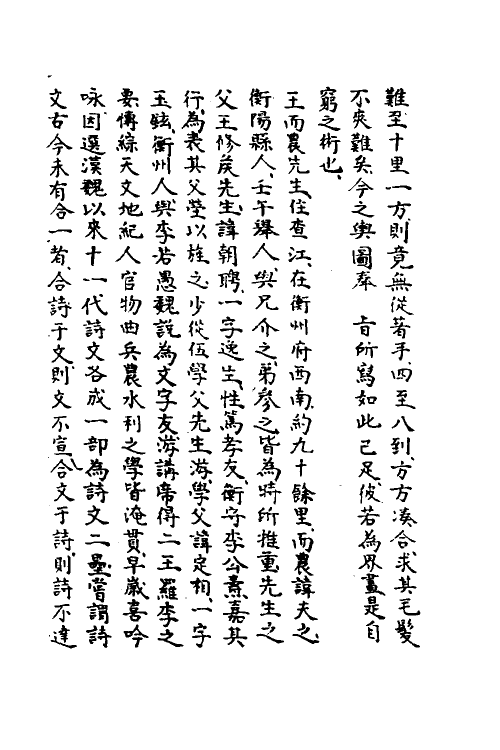 難至十里一方則竟無從著手四至八到方方湊合求其毛髮
不爽難矣今之輿圖奉　旨所寫如此已足彼若為界畫是自
窮之術也
王而農先生住查江在衡州府西南約九十餘里而農諱夫之
衡陽縣人壬午舉人與兄介之弟參之皆為時所推重先生之
父王修侯先生諱朝聘一字逸生性篤孝友衡守李公燾嘉其
行為表其父塋以旌之少從伍學父先生游學父諱定相一字
玉鉉衡州人與李若愚魏說為文字友游講席得二王羅李之
要傳綜天文地紀人官物曲兵農水利之學皆淹貫早歲喜吟
咏因選漢魏以來十一代詩文各成一部為詩文二壘嘗謂詩
文古今未有合一者合詩于文則文不宣合文于詩則詩不達